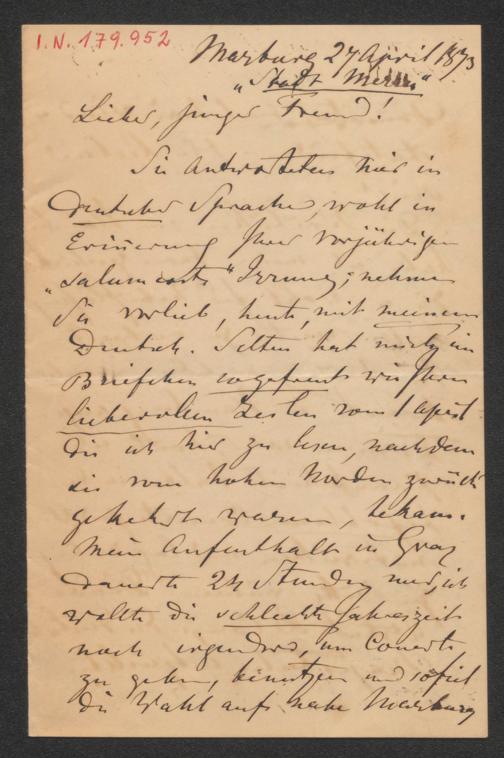 I.N. 179.952
Marburg 27 April 1873
"Stadt
Lieber, junger Freund!
Sie antworteten mir in
deutscher Sprache, wohl in
Erinnerung Ihrer vorjährigen
Irrung; nehmen
Sie vorlieb, heute, mit meinem
Deutsch. Selten hat mich ein
Briefchen so gefreut wie Ihre
lieben Zeilen vom 1 April
die ich hier zu lesen, nachdem
sie vom hohen Norden zurück
gekehrt waren, bekam.
Mein Aufenthalt in Graz
dauerte 24 Stunden nur, ich
wollte die schlechte Jahreszeit
noch irgendwo, um Concerte
zu geben, benützen und so fiel
die Wahl aufs nahe Marburg